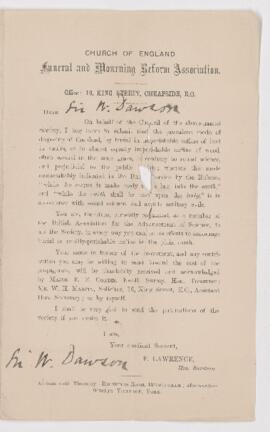 CHURCH OF ENGLAND
Funeral and Mourning Reform Association.
Office: 16, KING STREET, CHEAPSIDE, E.C.
Dear Sir W. Dawson
On behalf of the Council of the above-named
Society, I beg leave to submit that the prevalent mode of
disposal of the dead, by burial in imperishable coffins of lead
in vaults, or in almost equally imperishable coffins of wood,
often several in the same grave, is contrary to sound science,
and prejudicial to the public; whereas the mode
unmistakably indicated in the Burial Service by the Rubric,
"while the corpse is made ready to be laid into the earth,"
and "while the earth shall be cast upon the body," is in
accordance with sound science and
You are, therefore, earnestly requested, as a member of
the British Association for the Advancement of Science, to
aid the Society, in every way you can, in its efforts to encourage
burial in easily-perishable coffins in the
Your name in favour of the movement, and any contri-
bution you may be willing to make toward the cost of the
propaganda, will be thankfully received and acknowledged
by
Mr. W. H. Solicitor, 16, King Street, E.C., Assistant
Hon. Secretary; or by myself.
I shall be very glad to send the publications of the
Society if you desire it.
I am,
Your obedient Servant,
F. LAWRENCE,
Hon. Secretary.
Sir W. Dawson
YORK.